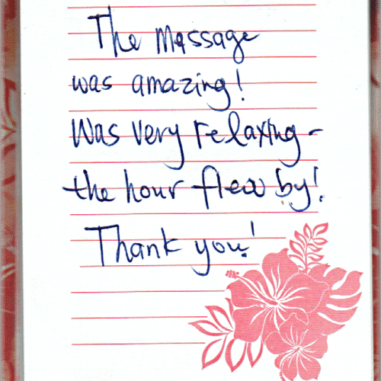 The massage
was amazing!
Was very relaxing -
the hour flew by!
Thank you!